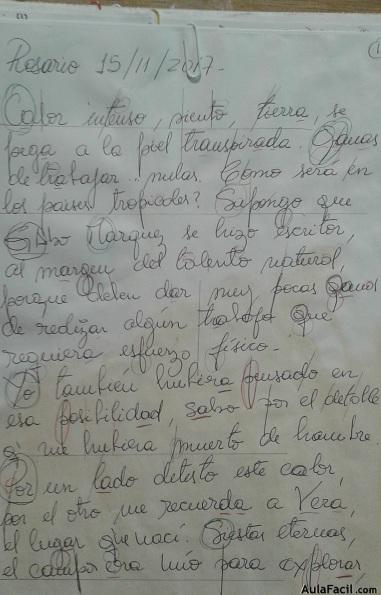 Rosario 15/11/2017.-
Calor intenso, viento, tierra, se
pega a la piel transpirada. Ganas
de trabajar... nulas. Cómo será en
los países tropicales? Supongo que
Gabo Marquez se hizo escritor,
al margen del talento natural,
porque deben dar muy pocas ganas
de realizar algún trabajo que
requiera esfuerzo físico.-
Yo también hubiera pensado en
esa posibilidad, salvo por el detalle
q' me hubiera muerto de hambre.
Por un lado detesto este calor,
por el otro me recuerda a Vera,
el lugar que nací. Siestas eternas,
el campo era mío para explorar,
AulaFacil.com